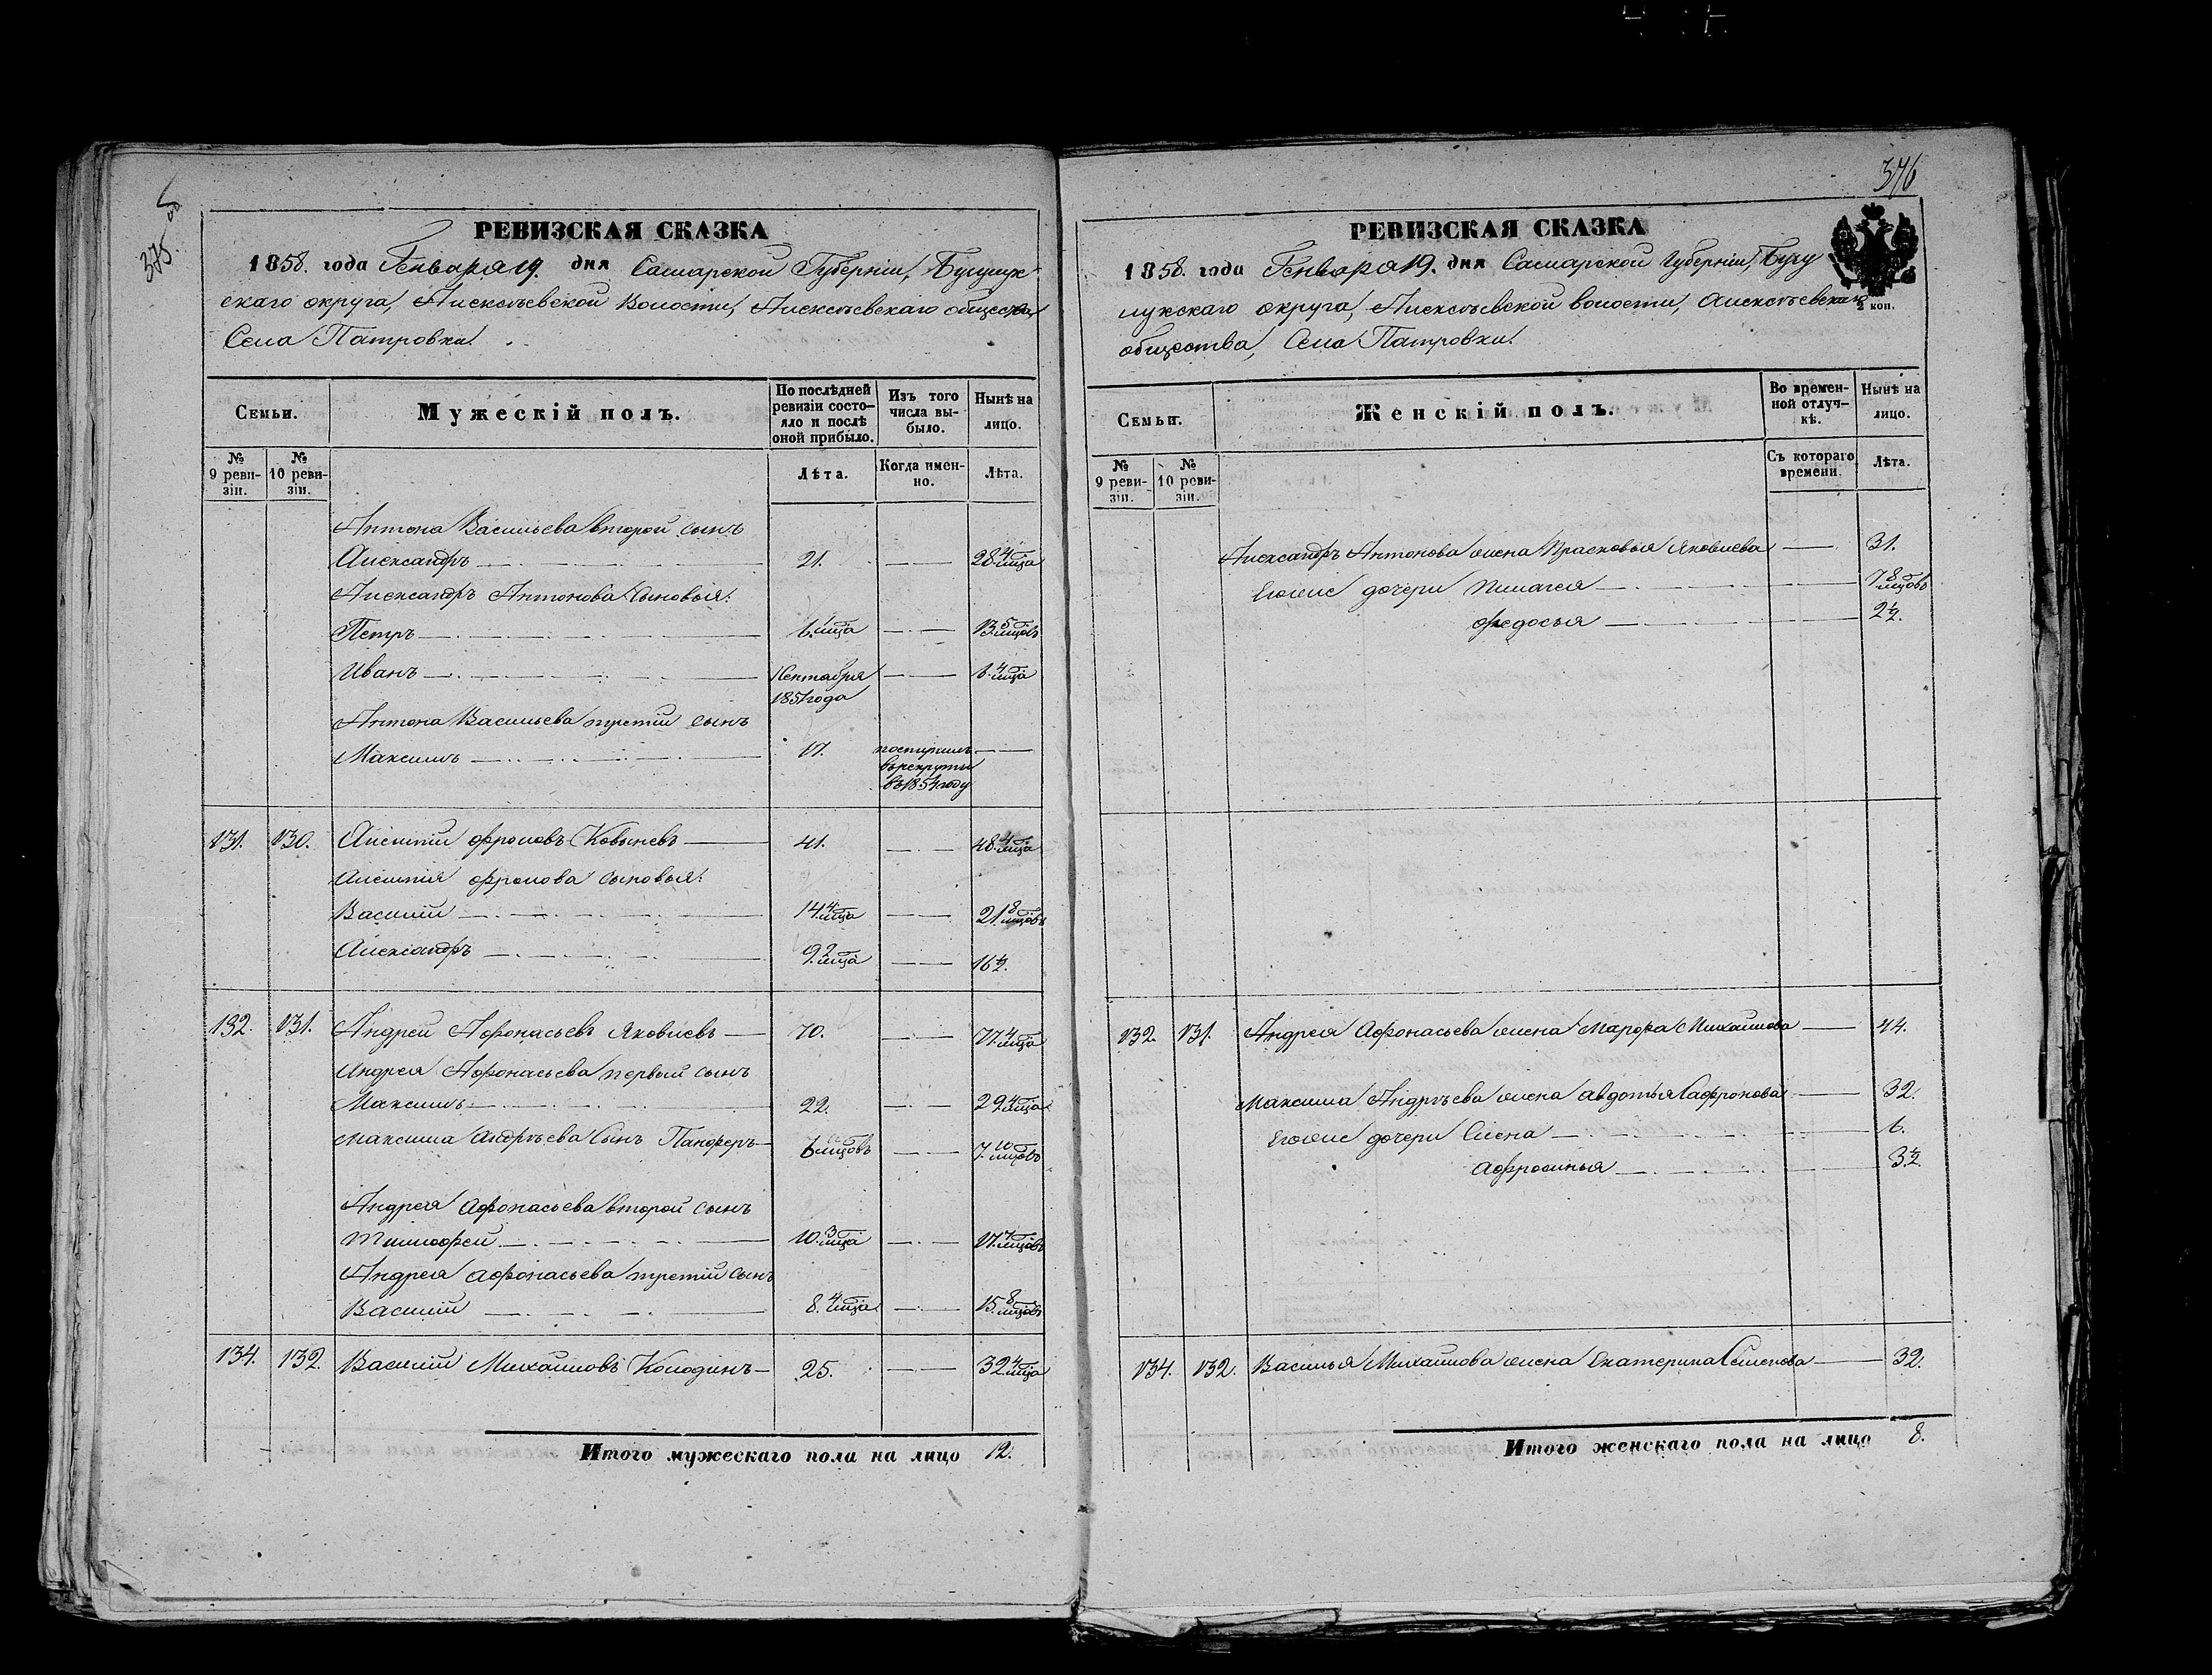 375 об
РЕВИЗСКАЯ СКАЗКА
1858. года Генваря 19. дня Самарской Губерніи, Бугульм-
скаго округа, Алексѣевской Волости, Алексѣевскаго общества,
Села Патровки.
Семьи.
Мужескій полъ.
По послѣдней ревизіи состояло и послѣ оной прибыло.
Изъ того числа вы-было.
Нынѣ на лицо.
№ 9 реви-зіи.
№ 10 реви-зіи.
Лѣта.
Когда имен-но.
Лѣта.
Антона Васильева второй сынъ
Александръ 21. 28. 4 мца
Александръ Антонова сыновья:
Петръ 6. 1 мца 13. 5 мцовъ
Иванъ Сентября 6. 4 мца
1851 года
Антона Васильева третій сынъ
Максимъ 17. поступилъ
въ рекруты
въ 1854 году
131. 130. Алентій Фроловъ Ковыневъ 41. 48. 4 мца
Алентія Фролова сыновья:
Василій 14. 4 мца 21. 8 мцовъ
Александръ 9. 2 мца 16 1/2.
132. 131. Андрей Афонасьевъ Яковлевъ 70. 77. 4 мца
Андрея Афонасьева первый сынъ
Максимъ 22. 29. 4 мца
Максима Андрѣева Сынъ Панферъ 6 мцовъ 7. 10 мцовъ
Андрея Афонасьева второй сынъ
Тимофей 10. 3 мца 17. 7 мцовъ
Андрея Афонасьева третій сынъ
Василій 8. 4 мца 15. 8 мцовъ
134. 132. Василій Михайловъ Колодинъ 25. 32. 4 мца
Итого мужескаго пола на лицо 12.
376
РЕВИЗСКАЯ СКАЗКА
1858. года Генваря 19. дня Самарской Губерніи, Бузу
лукскаго округа, Алексѣевской волости, Алексѣевскаго
общества, Села Патровки.
2 коп.
Семьи.
Женскій полъ.
Во времен-ной отлуч-кѣ.
Нынѣ на лицо.
№ 9 реви-зіи.
№ 10 реви-зіи.
Съ котораго времени.
Лѣта.
Александръ Антонова жена Прасковья Яковлева 31.
Егоже дочери Пелагея 7. 8 мцовъ
Федосья 2 1/2.
132. 131. Андрея Афонасьева жена Марфа Михайлова 44.
Максима Андрѣева жена Авдотья Сафронова 32.
Егоже дочери Елена 6.
Афросинья 3 1/2.
134. 132. Василья Михайлова жена Екатерина Семенова 32.
Итого женскаго пола на лицо 8.